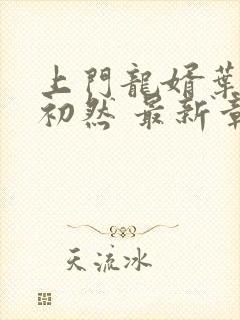 上門龍婿葉
初然 最新章
天流冰